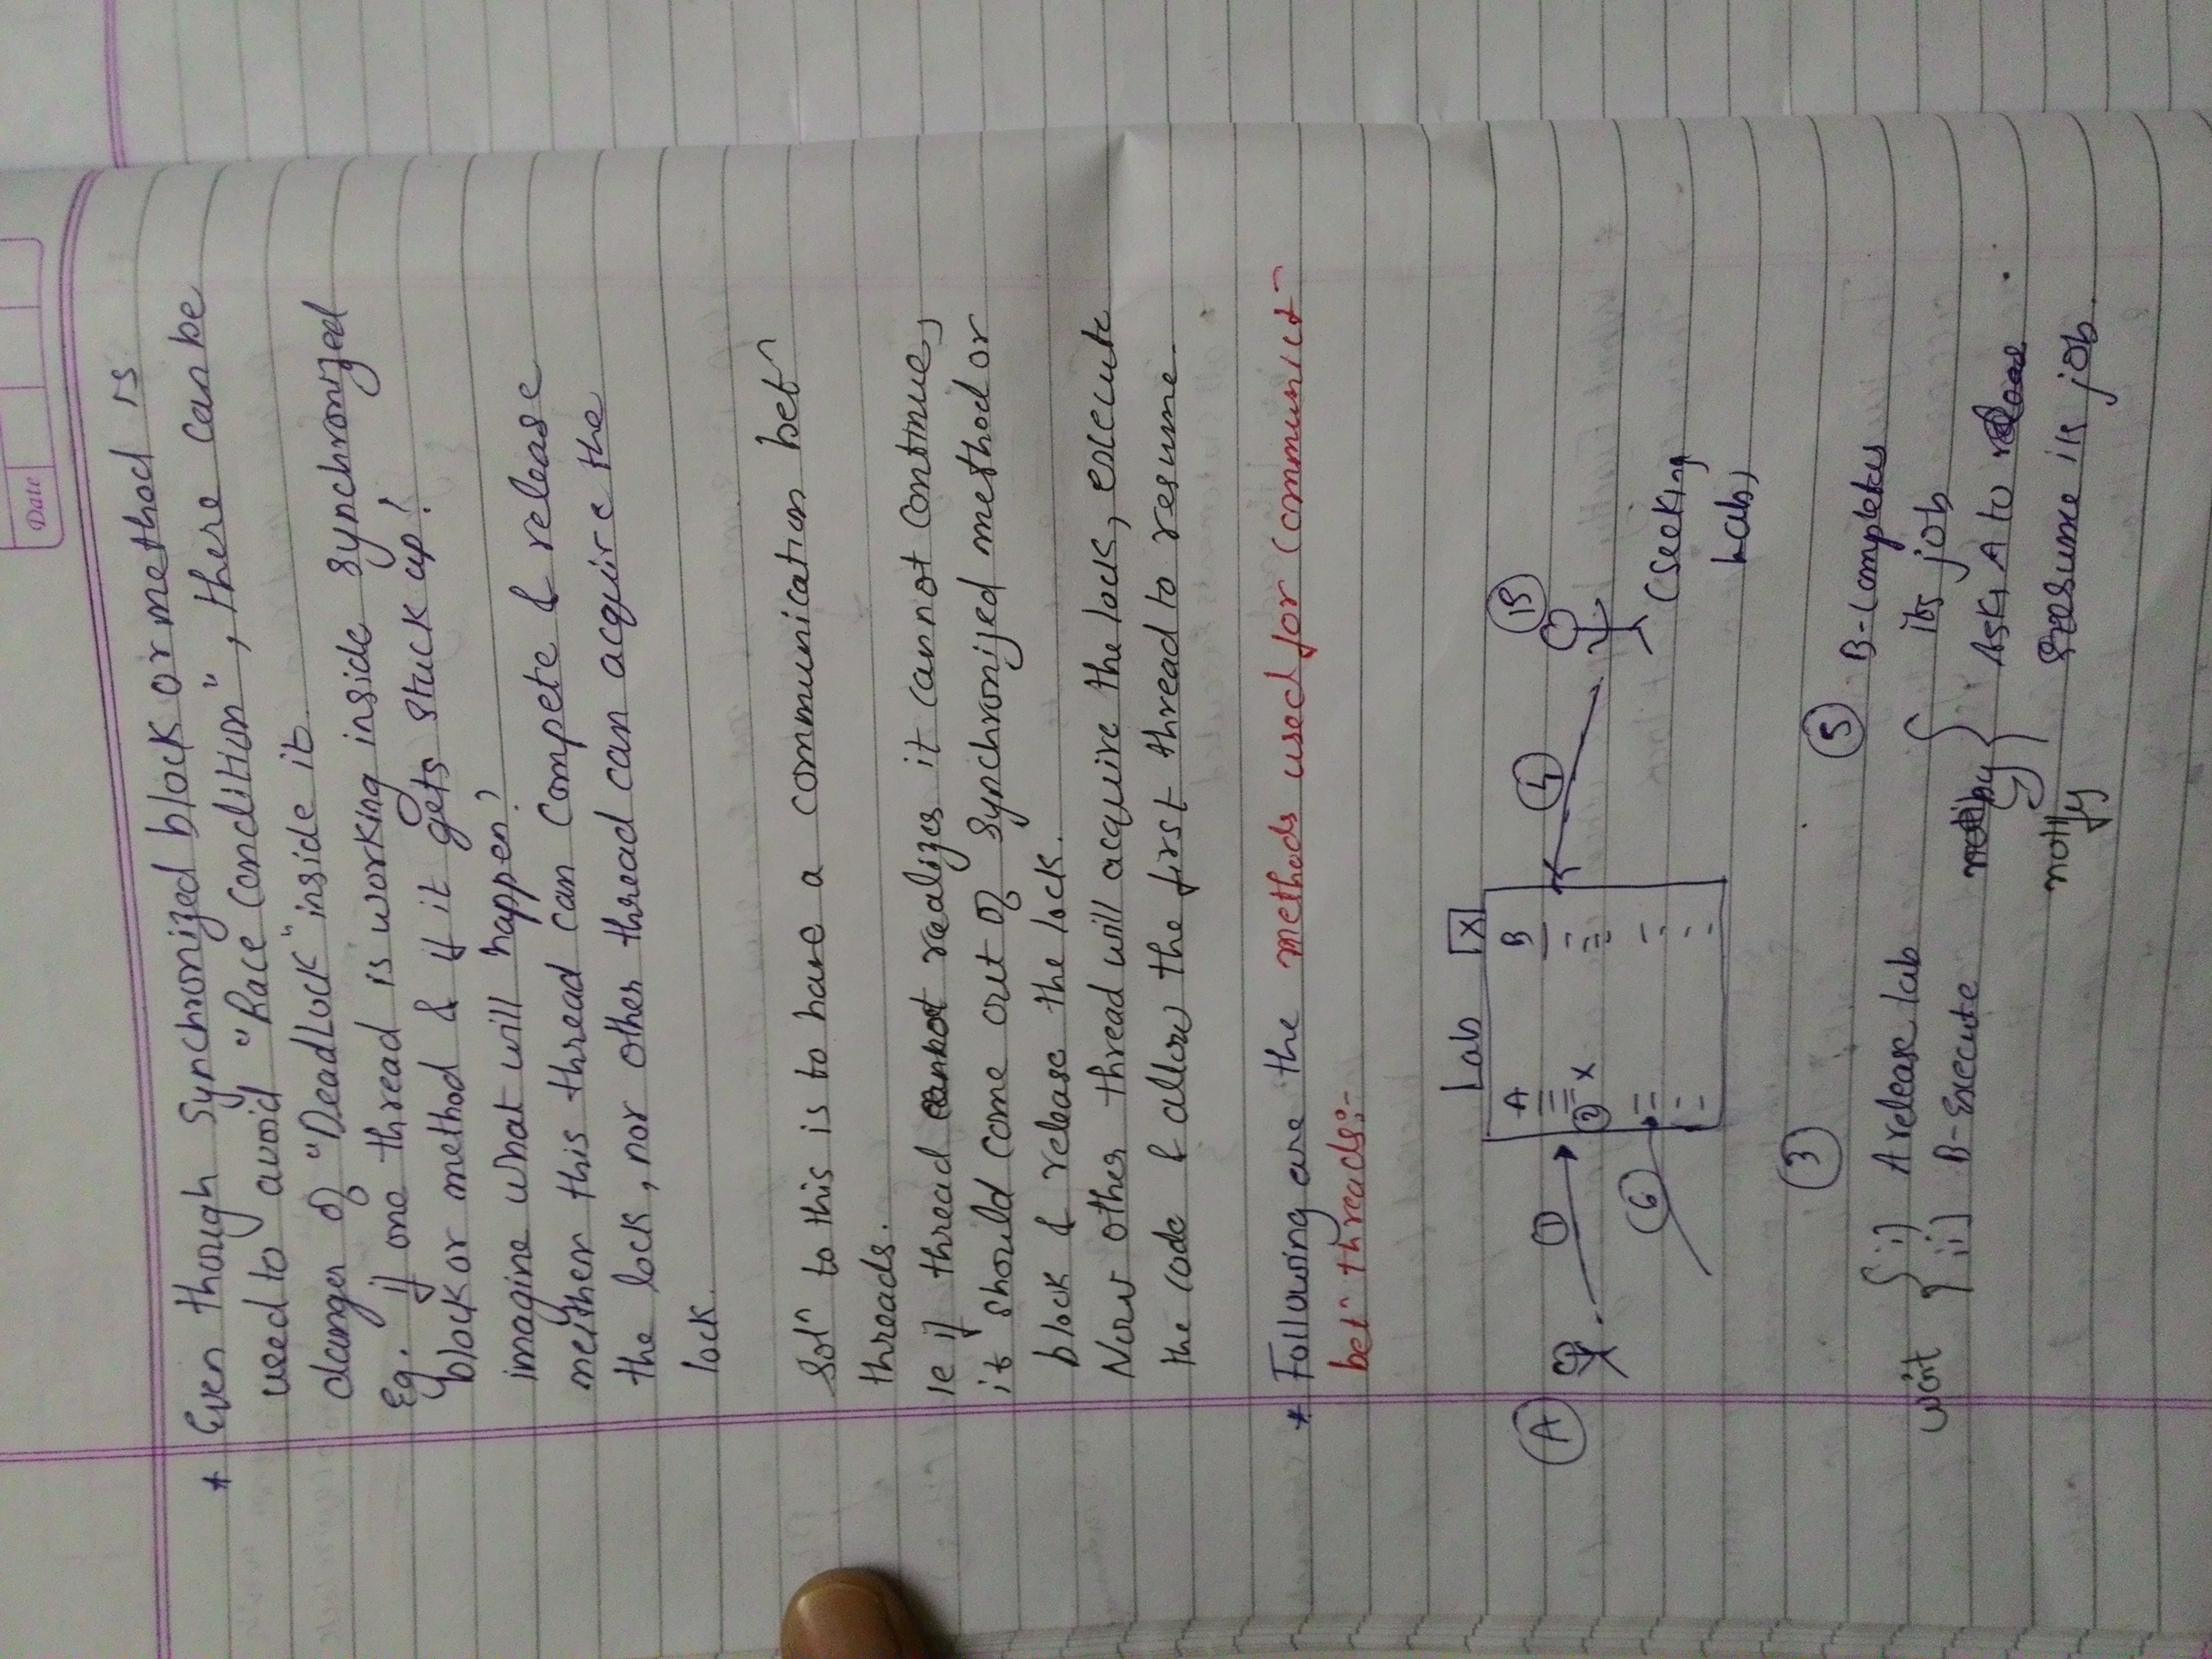 Date
* Even though synchronized block or method is
used to avoid "Race Condition", there can be
danger of "DeadLock" inside it.
Eg. if one thread is working inside synchronized
block or method & if it gets stuck up!
imagine what will happen?
neither this thread can compete & release
the lock, nor other thread can acquire the
lock.
Sol^n to this is to have a communication bet^n
threads.
ie if thread cannot realizes it cannot continue,
it should come out of synchronized method or
block & release the lock.
Now other thread will acquire the lock, execute
the code & allow the first thread to resume.
* Following are the methods used for communict^n
bet^n threads:-
Lab X
A B
A 1 4 B
2 x
6
(seeking
Lab)
3
5 B-completes
wait { i) A release lab
its job
ii) B-Execute
notify { Ask A to
notify resume its job.